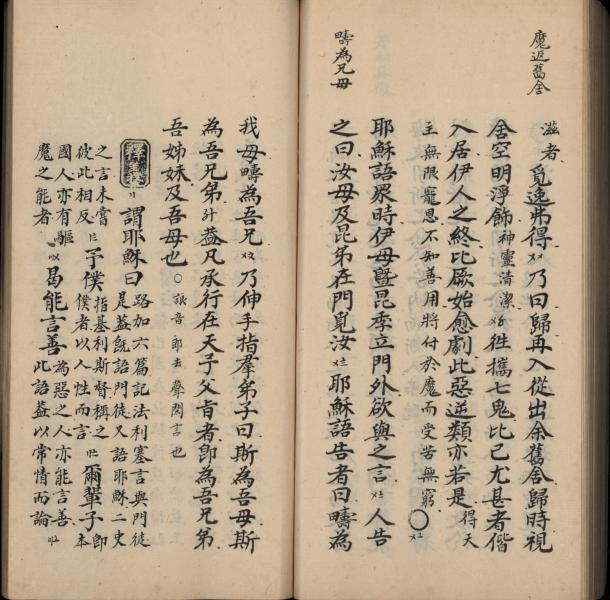 魔返舊舍
滋者覓逸弗得乃曰歸再入從出余舊舍歸時視
舍空明淨飾神靈清潔徃攜七鬼比己尤甚者偕
入居伊人之終比厥始愈劇此惡逆類亦若是得天
主無限寵恩不知善用將付於魔而受苦無窮〇
疇為兄母
耶穌語眾時伊母曁昆季立門外欲與之言人告
之曰汝母及昆弟在門覓汝耶穌語告者曰疇為
我母疇為吾兄乃伸手指羣弟子曰斯為吾母斯
為吾兄弟葢凡承行在天子父肯者卽為吾兄弟
吾姊妹及吾母也〇誏音郎去聲閒言也
謂耶穌曰路加六篇記法利塞言與門徒
是葢旣語門徒又語耶穌二史
之言未嘗
彼此相反子僕指基利斯督稱之
僕者以人性而言爾輩子卽
本
國人亦有驅
魔之能者曷能言善為惡之人亦能言善
此語葢以常情而論